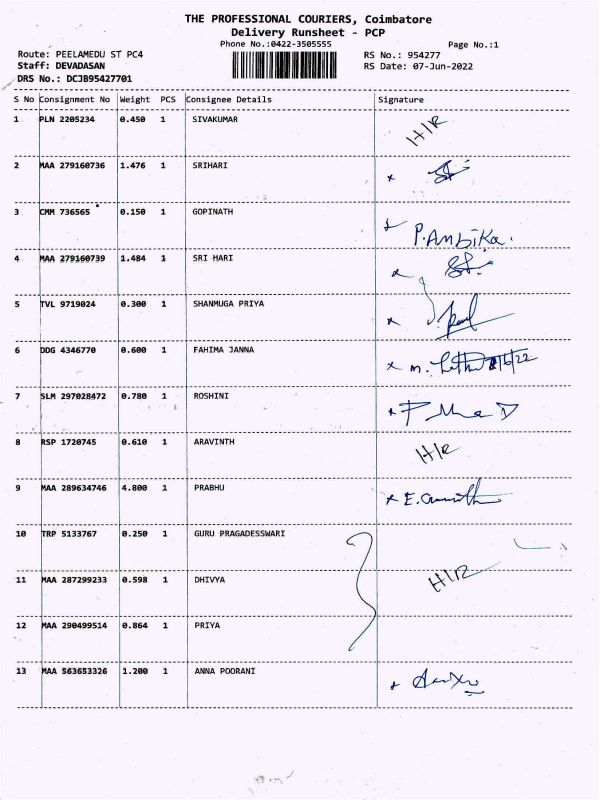 THE PROFESSIONAL COURIERS, Coimbatore
Delivery Runsheet - PCP
Phone No.:0422-3505555
Page No.:1
Route: PEELAMEDU ST PC4
RS No.: 954277
Staff: DEVADASAN
RS Date: 07-Jun-2022
DRS No.: DCJB95427701
S No Consignment No Weight PCS Consignee Details Signature
1 PLN 2205234 0.450 1 SIVAKUMAR H/R
2 MAA 279160736 1.476 1 SRIHARI
3 CMM 736565 0.150 1 GOPINATH P.AMbiKa.
4 MAA 279160739 1.484 1 SRI HARI
5 TVL 9719024 0.300 1 SHANMUGA PRIYA
6 DDG 4346770 0.600 1 FAHIMA JANNA
7 SLM 297028472 0.780 1 ROSHINI
8 RSP 1720745 0.610 1 ARAVINTH H/R
9 MAA 289634746 4.800 1 PRABHU
10 TRP 5133767 0.250 1 GURU PRAGADESSWARI
11 MAA 287299233 0.598 1 DHIVYA H/R
12 MAA 290499514 0.864 1 PRIYA
13 MAA 563653326 1.200 1 ANNA POORANI